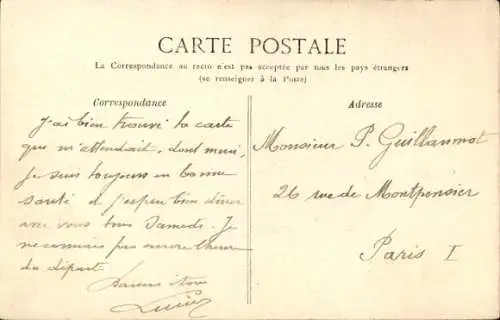 CARTE POSTALE
La Correspondance au recto n'est pas acceptée par tous les pays étrangers
(se renseigner à la Poste)
Correspondance
Adresse
J'ai bien trouvé la carte
qui m'attendait, dont merci,
je suis toujours en bonne
santé et j'espère bien dîner
avec vous tous Samedi. Je
ne connais pas encore l'heure
du départ.
à tous
Monsieur P. Guillaumot
26 rue de Montpensier
Paris I